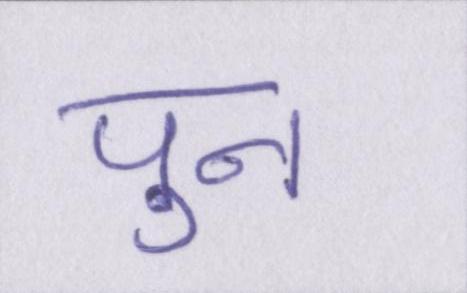 पुन